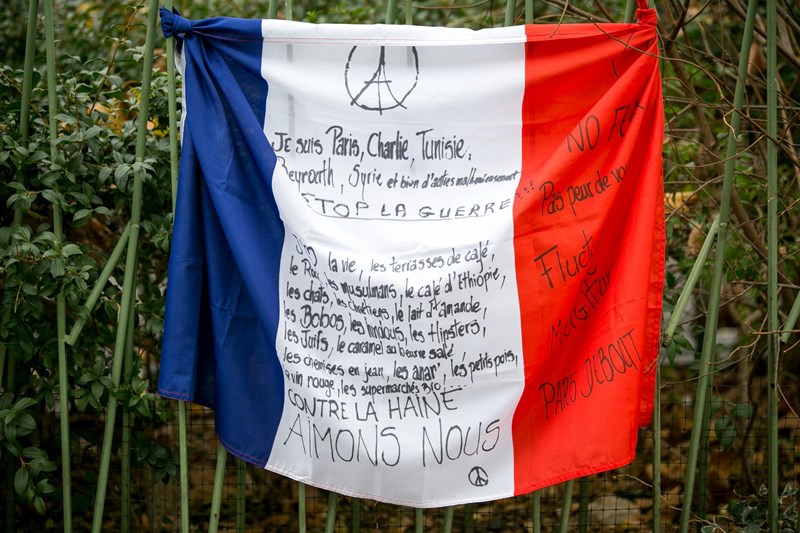 Je suis Paris, Charlie, Tunisie,
Beyrouth, Syrie et bien d'autres malheureusement...
STOP LA GUERRE
la vie, les terrasses de café,
le les musulmans, le café d'Ethiopie,
les chats, les chrétiens, le lait d'amande,
les Bobos, les lmaous, les Hipsters,
les Juifs, le caramel au beurre salé
les chemises en jean, les anar', les petits pois,
vin rouge, les supermarchés BIO...
CONTRE LA HAINE
AIMONS NOUS
NO
Pas peur de
PARIS DEBOUT